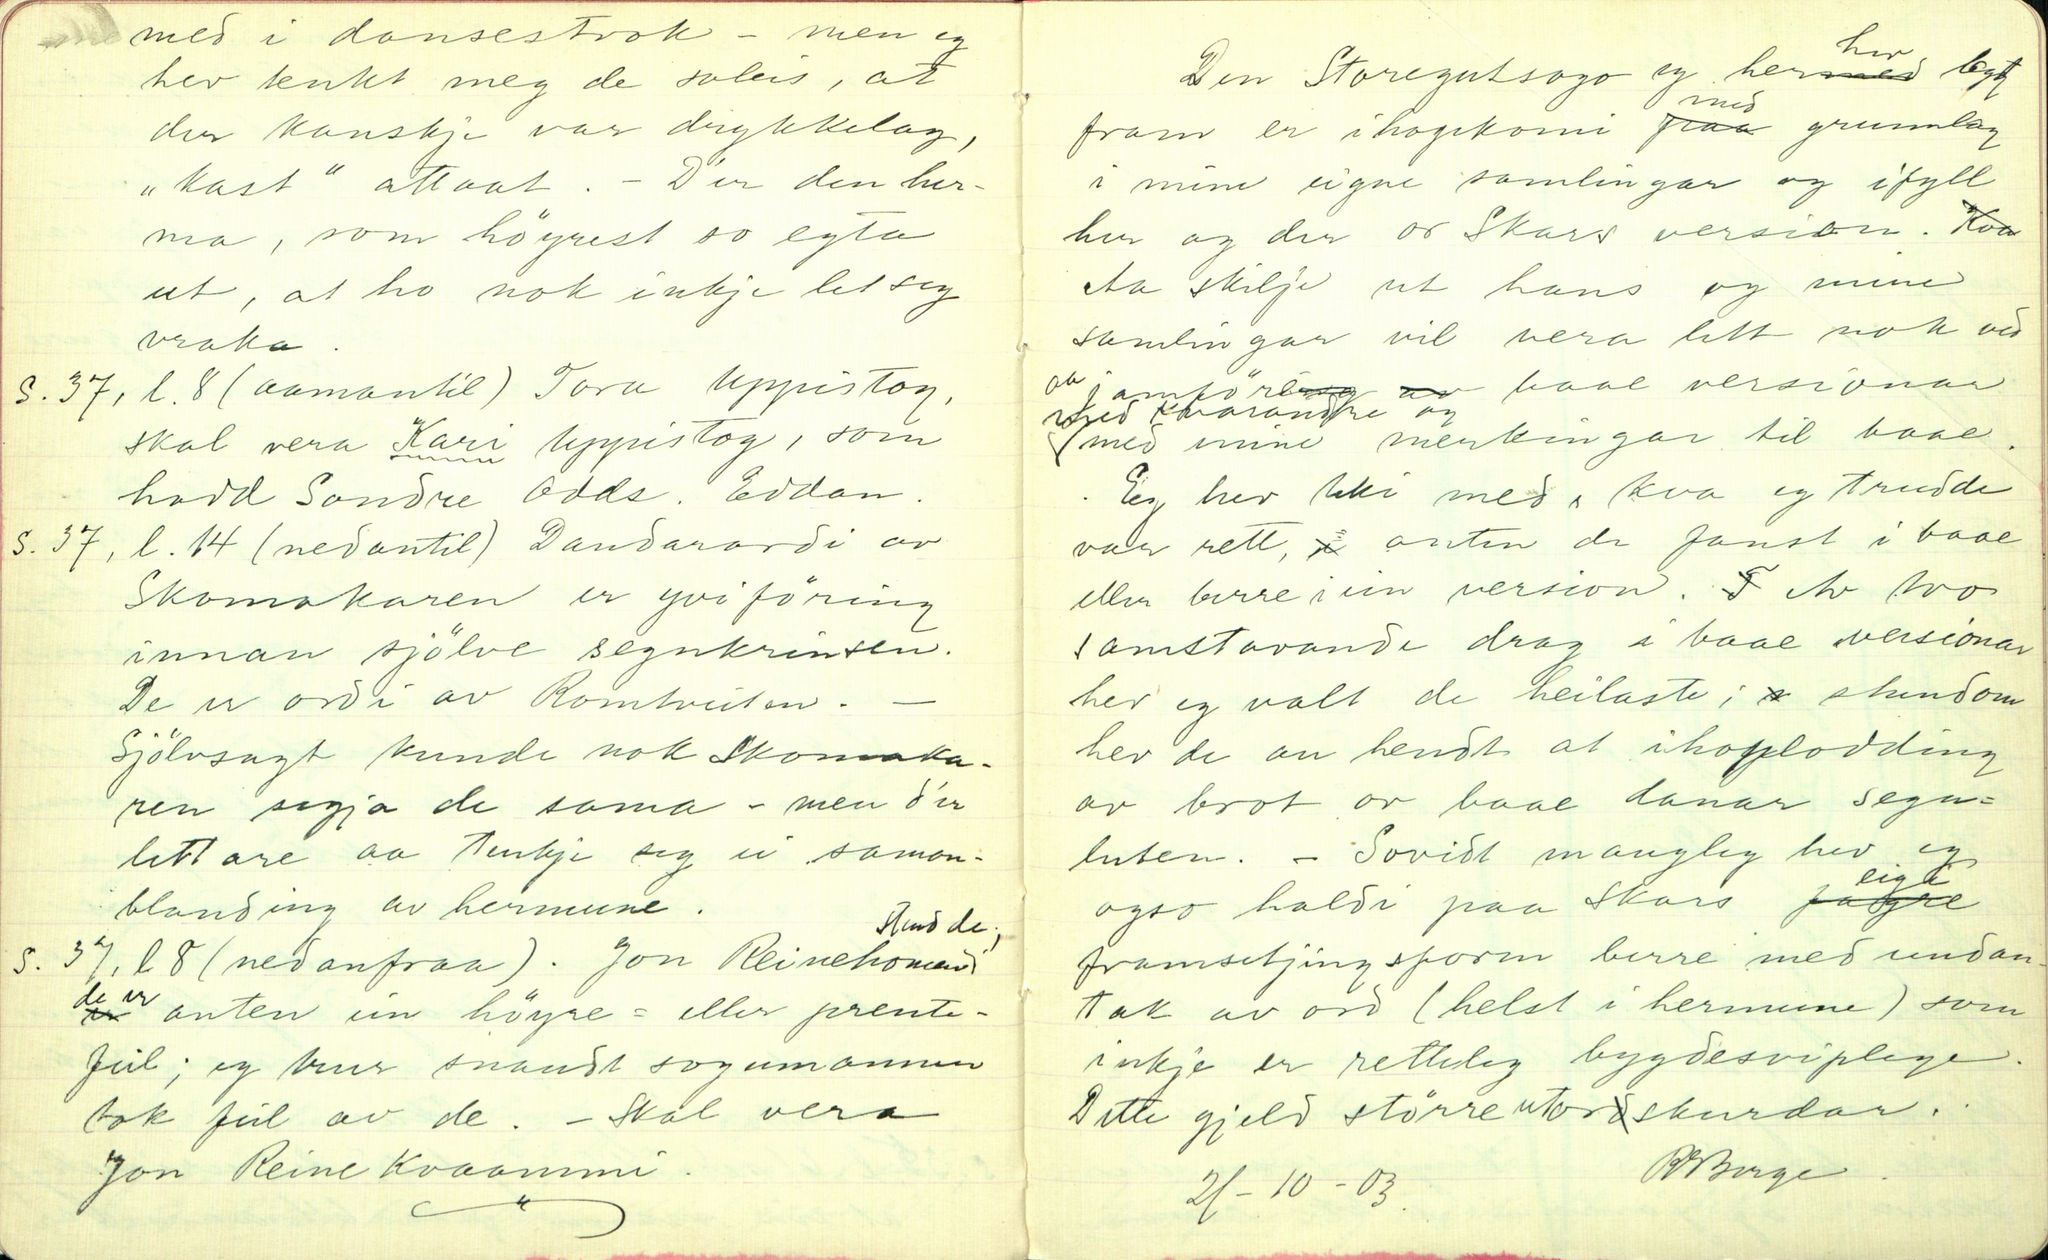 med i dansestrok - men eg
hev tenkt meg de soleis, at
der kanskje var drykkelag,
„kast" attaat. - D'er den her-
ma, som höyrest so egta
ut, at ho nok inkje let seg
vraka.
S. 37, l. 8 (aamantil) Tora Uppistog,
skal vera Kari Uppistog, som
hadd Sondre Odds. Eddan.
S. 37, l. 14 (nedantil) Daudarardi av
Skomakaren er yviföring
innan sjölve segnkrinsen.
De er ordi av Romtveiten. -
Sjölvsagt kunde nok Skomaka-
ren segja de sama - men d'er
lettare aa tenkje seg ei saman-
blanding av hermune.
S. 37, l 8 (nedanfraa). Jon Reinehomend
Studde,
de er anten ein höyre = eller prente-
feil; eg trur snaudt sogumannen
tok feil av de. - Skal vera
Jon Reine Kvaammi.
Den Storegutsogo eg her hev lagt
fram er ihogekomi med grunnlag
i mine eigne samlingar og ifyll
her og der or Skars version. Kva
Aa skilje ut hans og mine
samlingar vil vera lett nok ved
aa jamföre baae versionar
med kvarandre og
med mine merkingar til baae.
Eg hev teki med, kva eg trudde
var rett, anten de fanst i baae
eller berre i ein version. Av tvo
samstavande drag i baae versionar
hev eg valt de heilaste; stundom
hev de au hendt at ihoplodding
av brot or baae danar segn-
luten. - Sovidt mangleg hev eg
ogso haldi paa Skars eigi
framsetjingsform berre med undan-
tak av ord (helst i hermune) som
inkje er retteleg bygdesviplege.
Dette gjeld större utordskurdar.
21 - 10 - 03.
RBerge.